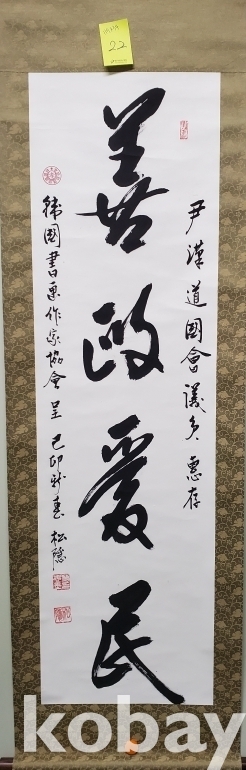 22
尹漢道國會議員 惠存
善政愛民
韓國書畫作家協會 呈 己卯新春 松隱
kobay